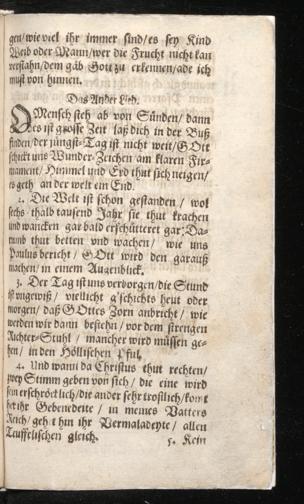 gen/wie viel ihr immer sind/es sey Kind
Weib oder Mann/wer die Frucht nicht kan
verstahn/dem gäb Gott zu erkennen/ade ich
must von hinnen.
Das Ander Lied.
O Mensch steh ab von Sünden/dann
es ist grosse Zeit laß dich in der Buß
finden/der jüngst-Tag ist nicht weit/GOtt
schickt uns Wunder-Zeichen am klaren Fir-
mament/Himmel und Erd thut sich neigen/
es geth an der welt ein End.
2. Die Welt ist schon gestanden / wol
sechs thalb tausend Jahr sie thut krachen
und wancken gar bald erschütteret gar; Da-
rumb thut betten und wachen/ wie uns
Paulus bericht / GOtt wird den garauß
machen/in einem Augenblick.
3. Der Tag ist uns verborgen/die Stund
ist ungewiß/ viellicht g'schichts heut oder
morgen/ daß GOttes Zorn anbricht/ wie
werden wir dann bestehn/vor dem strengen
Richter-Stuhl / mancher wird müssen ge-
hen/ in den Höllischen Pful.
4. Und wann da Christus thut rechten/
zwey Stimm geben von sich/ die eine wird
sein erschröcklich/die ander sehr tröstlich/komt
her ihr Gebenedeite / in meines Vatters
Reich/ geh t hin ihr Vermaladeyte/ allen
Teufflischen gleich.
5. Kein